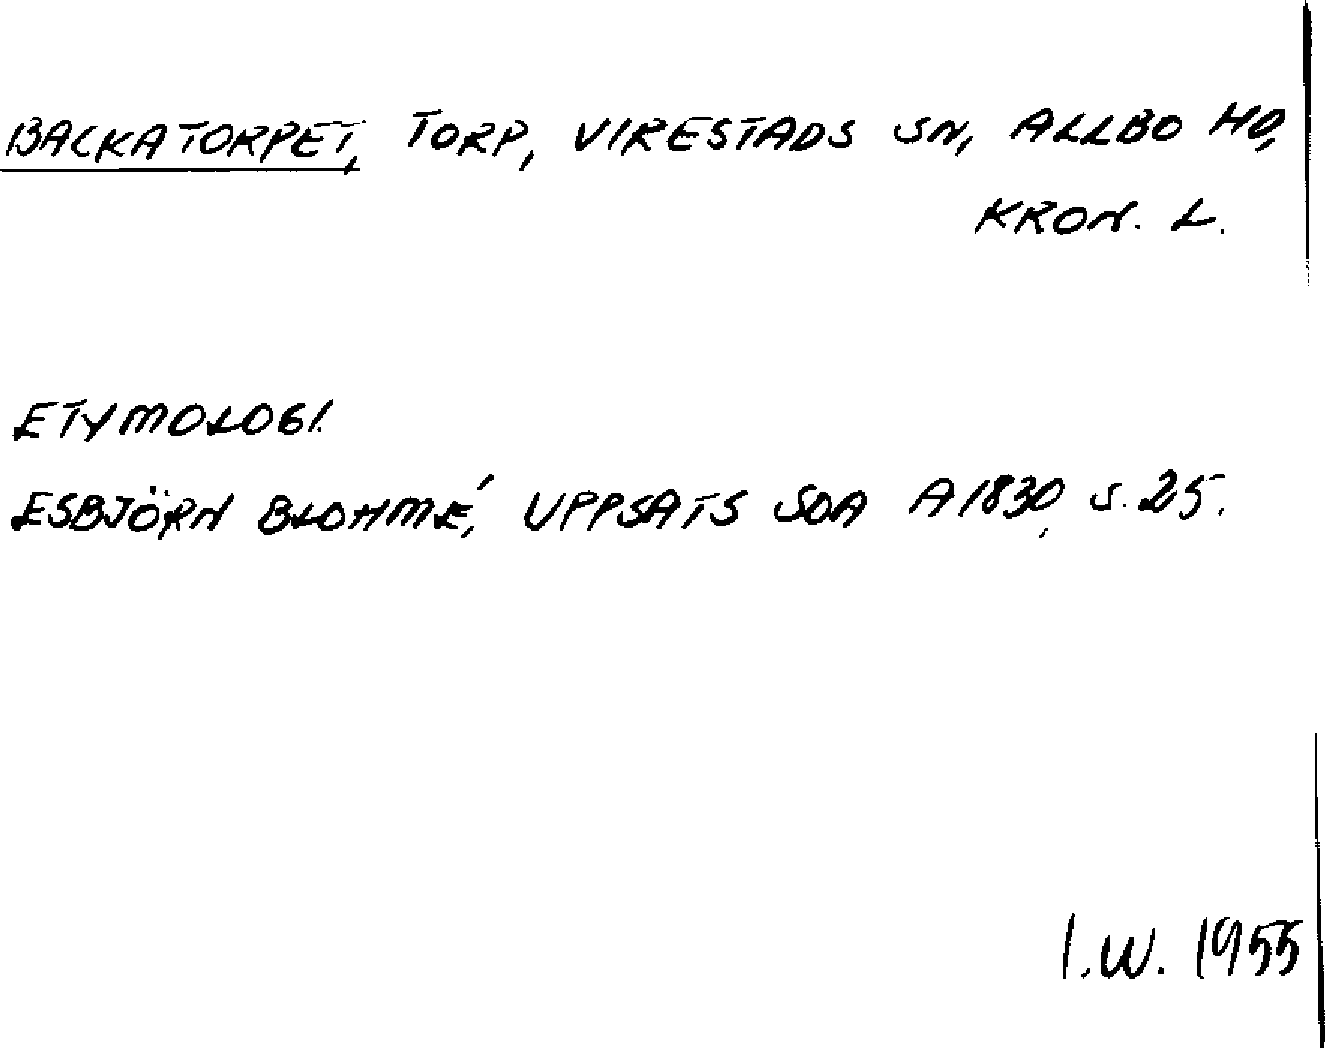 BACKATORPET, TORP, VIRESTADS SN, ALLBO HD,
KRON. L.
ETYMOLOGI.
ESBJÖRN BLOHMÉ, UPPSATS SOA A1830, S. 25.
I.W. 1955